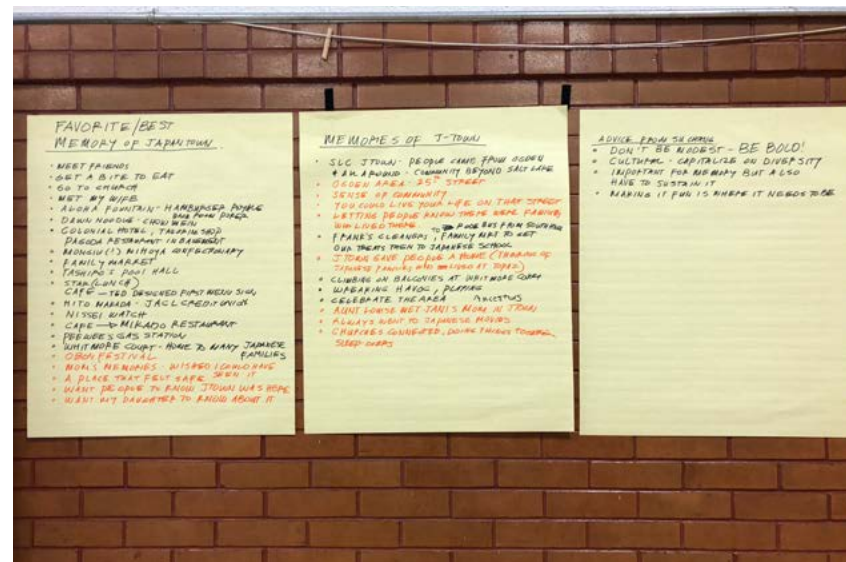 FAVORITE/BEST
MEMORY OF JAPANTOWN
• MEET FRIENDS
• GET A BITE TO EAT
• GO TO CHURCH
• MET MY WIFE
• ALOHA FOUNTAIN - HAMBURGER ROYALE
• DAWN NOODLE - CHOW MEIN
• COLONIAL HOTEL, TAILORING SHOP
PAGODA RESTAURANT IN BASEMENT
• MONGIU(!) MIHOYA CONFECTIONARY
• FAMILY MARKET
• TASHIRO'S POOL HALL
• STAR (LUNCH)
CAFE — TED DESIGNED FIRST MENU SIGN
• HITO NAKADA - JACL CREDIT UNION
• NISSEI WATCH
• CAFE → MIKADO RESTAURANT
• PEEWEES GAS STATION
• WHITMORE COURT - HOME TO MANY JAPANESE
FAMILIES
• OBON FESTIVAL
• MOM'S MEMORIES - WISHED I COULD HAVE
SEEN IT
• A PLACE THAT FELT SAFE
• WANT PEOPLE TO KNOW JTOWN WAS HERE
• WANT MY DAUGHTER TO KNOW ABOUT IT
MEMORIES OF J-TOWN
• SLC JTOWN - PEOPLE CAME FROM OGDEN
& ALL AROUND - COMMUNITY BEYOND SALT LAKE
• OGDEN AREA - 25th STREET
• SENSE OF COMMUNITY
YOU COULD LIVE YOUR LIFE ON THAT STREET
• LETTING PEOPLE KNOW THERE WERE FAMILIES
WHO LIVED THERE
• FRANK'S CLEANERS, FAMILY MKT TO GET
OUR TREATS THEN TO JAPANESE SCHOOL
• JTOWN GAVE PEOPLE A HOME (THINKING OF
JAPANESE FAMILIES WHO LIVED AT TOPAZ)
• CLIMBING ON BALCONIES AT WHITMORE COURT
• WREAKING HAVOC, PLAYING
• CELEBRATE THE AREA ANCESTORS
• AUNT LOUISE MET JANI'S MOM IN JTOWN
• ALWAYS WENT TO JAPANESE MOVIES
• CHURCHES CONNECTED, DOING THINGS TOGETHER,
SLEEP-OVERS
ADVICE FROM
• DON'T BE MODEST - BE BOLD!
• CULTURAL - CAPITALIZE ON DIVERSITY
• IMPORTANT FOR MEMORY BUT ALSO
HAVE TO SUSTAIN IT
• MAKING IT FUN IS WHERE IT NEEDS TO BE